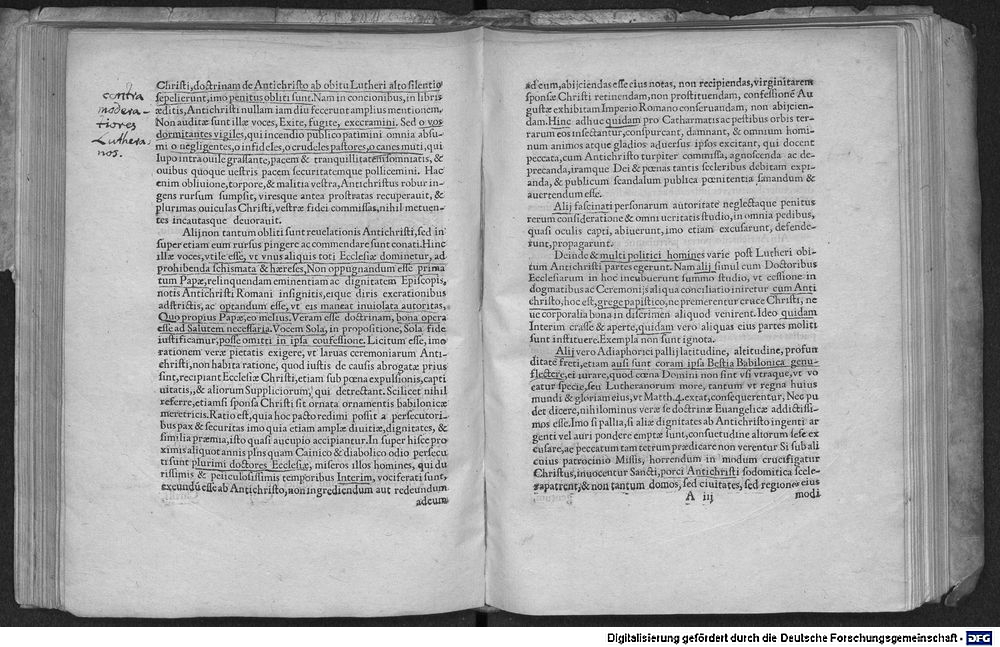 contra
modera-
tiores
Luthera
nos.
Chriſti, doctrinam de Antichriſto ab obitu Lutheri alto ſilentio
ſepelierunt, imo penitus obliti ſunt. Nam in concionibus, in libris
æditis, Antichriſti nullam iam diu fecerunt amplius mentionem.
Non auditæ ſunt illæ voces, Exite, fugite, execramini. Sed o vos
dormitantes vigiles, qui incendio publico patimini omnia abſu-
mi o negligentes, o infideles, o crudeles paſtores, o canes muti, qui
lupo intra ouile graſſante, pacem & tranquillitatem ſomniatis, &
ouibus quoque veſtris pacem ſecuritatemque pollicemini. Hac
enim obliuione, torpore, & malitia veſtra, Antichriſtus robur in-
gens rurſum ſumpſit, viresque antea proſtratas recuperauit, &
plurimas ouiculas Chriſti, veſtræ fidei commiſſas, nihil metuen-
tes incautasque deuorauit.
Alij non tantum obliti ſunt reuelationis Antichriſti, ſed in
ſuper etiam eum rurſus pingere ac commendare ſunt conati. Hinc
illæ voces, vtile eſſe, vt vnus aliquis toti Eccleſiæ dominetur, ad
prohibenda schiſmata & hæreſes, Non oppugnandum eſſe prima
tum Papæ, relinquendam eminentiam ac dignitatem Epiſcopis,
notis Antichriſti Romani inſignitis, eique diris exerationibus
adſtrictis, ac optandum eſſe, vt eis maneat inuiolata autoritas,
Quo propius Papæ, eo melius. Veram eſſe doctrinam, bona opera
eſſe ad Salutem neceſſaria. Vocem Sola, in propoſitione, Sola fide
iuſtificamur, poſſe omitti in ipſa coufeſſione. Licitum eſſe, imo
rationem veræ pietatis exigere, vt laruas ceremoniarum Anti-
chriſti, non habita ratione, quod iuſtis de cauſis abrogatæ prius
ſint, recipiant Eccleſiæ Chriſti, etiam ſub pœna expulſionis, capti
uitatis,, & aliorum Suppliciorum, qui detrectant. Scilicet nihil
referre, etiamſi ſponſa Chriſti ſit ornata ornamentis babilonicæ
meretricis. Ratio eſt, quia hoc pacto redimi poſſit a perſecutori-
bus pax & ſecuritas imo quia etiam amplæ diuitiæ, dignitates, &
ſimilia præmia, iſto quaſi aucupio accipiantur. In ſuper hiſce pro
ximis aliquot annis plnsquam Cainico & diabolico odio perſecu
ti ſunt plurimi doctores Eccleſiæ, miſeros illos homines, qui du
riſſimis & peiiculoſiſſimis temporibus Interim, vociferati ſunt,
excundū eſſe ab Antichriſto, non ingrediendum aut redeundum
ad eum
ad eum, abijciendas eſſe eius notas, non recipiendas, virginitatem
ſponſæ Chriſti retinendam, non proſtituendam, confeſſionē Au
guſtæ exhibitam Imperio Romano conſeruandam, non abijcien-
dam. Hinc adhuc quidam pro Catharmatis ac peſtibus orbis ter-
rarum eos inſectantur, conſpurcant, damnant, & omnium homi-
num animos atque gladios aduerſus ipſos excitant, qui docent
peccata, cum Antichriſto turpiter commiſſa, agnoſcenda ac de-
precanda, iramque Dei & pœnas tantis ſceleribus debitam expa-
anda, & publicum ſcandalum publica pœnitentia ſanandum &
auertendum eſſe.
Alij faſcinati perſonarum autoritate neglectaque penitus
rerum conſideratione & omni veritatis ſtudio, in omnia pedibus,
quaſi oculis capti, abiuerunt, imo etiam excuſarunt, defende-
runt, propagarunt.
Deinde & multi politici homines varie poſt Lutheri obi-
tum Antichriſti partes egerunt. Nam alij ſimul cum Doctoribus
Eccleſiarum in hoc incubuerunt ſummo ſtudio, vt ceſſione in
dogmatibus ac Ceremonijs aliqua conciliatio iniretur cum Anti
chriſto, hoc eſt, grege papiſtico, ne premerentur cruce Chriſti, ne
ue corporalia bona in diſcrimen aliquod venirent. Ideo quidam
Interim craſſe & aperte, quidam vero aliquas eius partes moliti
ſunt inſtituere. Exempla non ſunt ignota.
Alij vero Adiaphorici pallij latitudine, altitudine, profun
ditate freti, etiam auſi ſunt coram ipſa Beſtia Babilonica genu-
flectere, ei iurare, quod cœna Domini non ſint vſi vtraque, vt vo
catur ſpecie, ſeu Lutheranorum more, tantum vt regna huius
mundi & gloriam eius, vt Matth. 4. extat, conſequerentur, Nec pu
det dicere, nihilominus veræ ſe doctrinæ Euangelicæ addictiſſi-
mos eſſe. Imo ſi pallia, ſi aliæ dignitates ab Antichriſto ingenti ar
genti vel auri pondere emptæ ſunt, conſuetudine aliorum ſeſe ex
cuſare, ac peccatum tam tetrum prædicare non verentur Si ſub ali
cuius patrocinio Miſſis, horrendum in modum crucifigatur
Chriſtus, inuocentur Sancti, porci Antichriſti ſodomitica ſcele-
ra patrent, & non tantum domos, ſed ciuitates, ſed regiones eius
A iij
modi
Digitalisierung gefördert durch die Deutsche Forschungsgemeinschaft - DFG